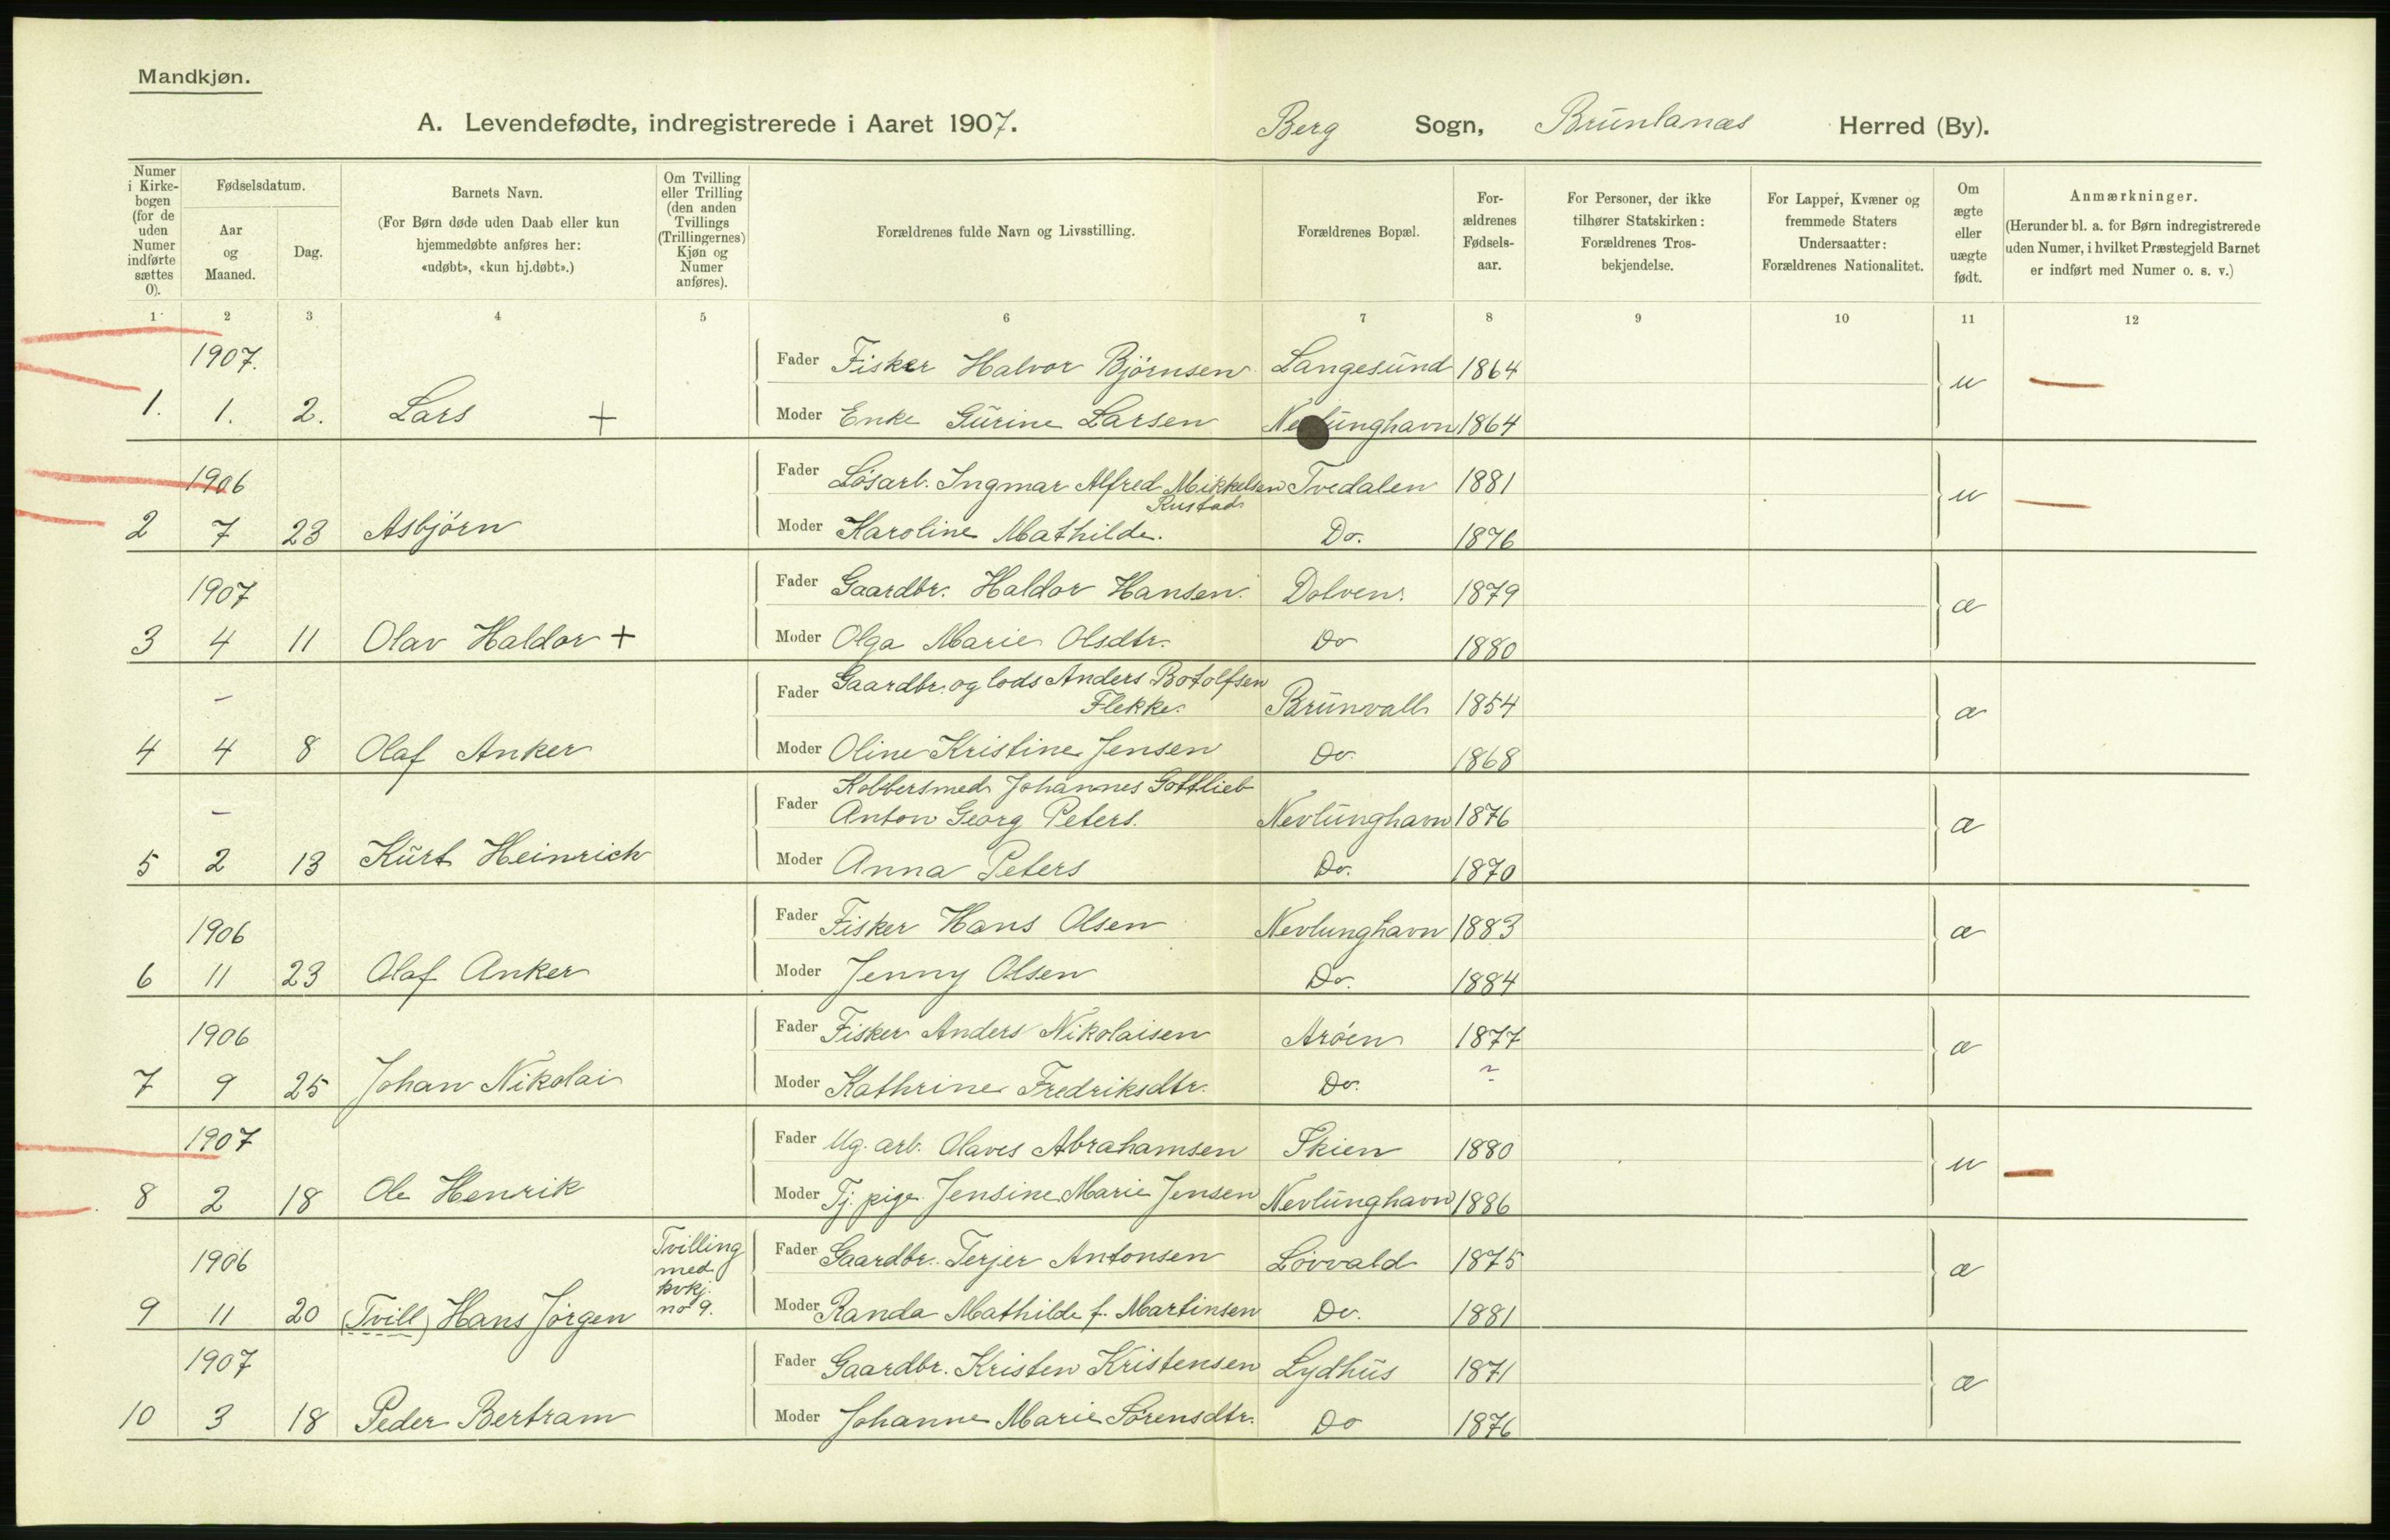 Mandkjøn.
A. Levendefødte, indregistrerede i Aaret 1907. Berg Sogn, Brunlanæs Herred (By).
Numer i Kirkebogen (for de uden Numer indførte sættes 0).
Fødselsdatum.
Aar og Maaned.
Dag.
Barnets Navn.
(For Børn døde uden Daab eller kun hjemmedøbte anføres her: «udøbt», «kun hj.døbt».)
Om Tvilling eller Trilling (den anden Tvillings (Trillingernes) Kjøn og Numer anføres).
Forældrenes fulde Navn og Livsstilling.
Forældrenes Bopæl.
Forældrenes Fødselsaar.
For Personer, der ikke tilhører Statskirken: Forældrenes Trosbekjendelse.
For Lapper, Kvæner og fremmede Staters Undersaatter: Forældrenes Nationalitet.
Om ægte eller uægte født.
Anmærkninger.
(Herunder bl. a. for Børn indregistrerede uden Numer, i hvilket Præstegjeld Barnet er indført med Numer o. s. v.)
1 2 3 4 5 6 7 8 9 10 11 12
1907. Fader Fisker Halvor Björnsen Langesund 1864 u —
1. 1. 2. Lars + Moder Enke Gurine Larsen Nevlunghavn 1864
1906 Fader Løsarb. Ingmar Alfred Mikkelsen Tvedalen 1881 u —
Rustad
2 7 23 Asbjörn Moder Karoline Mathilde. Do. 1876
1907 Fader Gaardbr. Haldor Hansen. Dolven. 1879 æ
3 4 11 Olav Haldor + Moder Olga Marie Olsdtr. Do 1880
Gaardbr. og lods Anders Botolfsen
– Fader Flekke. Brunvall 1854 æ
4 4 8 Olaf Anker Moder Oline Kristine Jensen Do. 1868
Kobbersmed Johannes Gottlieb
– Fader Anton Georg Peters. Nevlunghavn 1876 æ
5 2 13 Kurt Heinrich Moder Anna Peters Do. 1870
1906 Fader Fisker Hans Olsen Nevlunghavn 1883 æ
6 11 23 Olaf Anker Moder Jenny Olsen Do. 1884
1906 Fader Fisker Anders Nikolaisen Aröen 1877 æ
7 9 25 Johan Nikolai Moder Kathrine Fredriksdtr. Do. ~
1907 Fader Ug. arb. Olaves Abrahamsen Skien 1880 u —
8 2 18 Ole Henrik Moder Tj. pige Jensine Marie Jensen Nevlunghavn 1886
1906 Tvilling med kvkj. no 9. Fader Gaardbr. Terjer Antonsen Lövvald 1875 æ
9 11 20 (Tvill) Hans Jörgen Moder Randa Mathilde f. Martinsen Do. 1881
1907 Fader Gaardbr. Kristen Kristensen Lydhus 1871 æ
10 3 18 Peder Bertram Moder Johanne Marie Sörensdtr. Do 1876